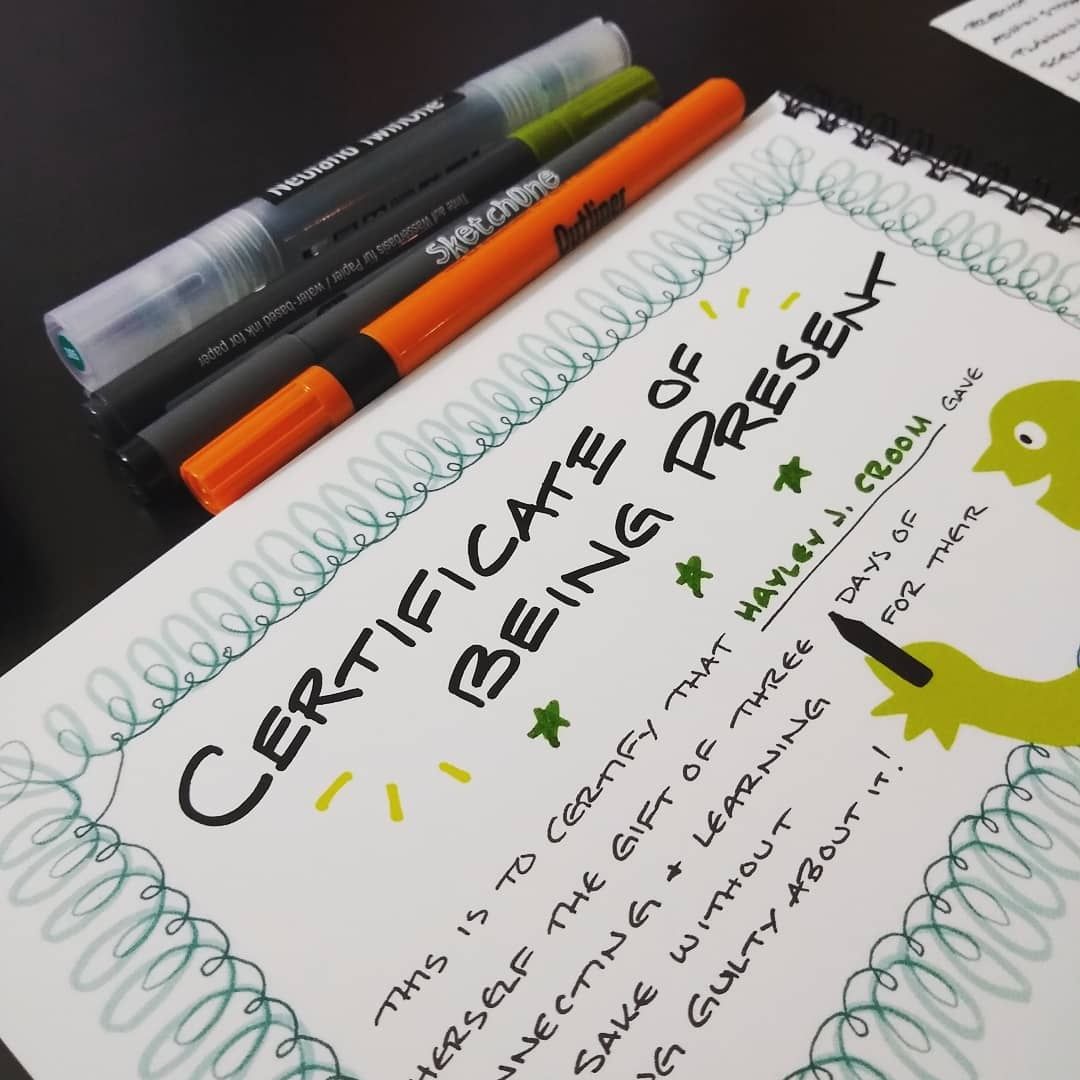 Neuland TwinOne
Tinte auf Wasserbasis für Papier / water-based ink for paper
SketchOne
Outliner
CERTIFICATE OF
BEING PRESENT
THIS IS TO CERTIFY THAT HAYLEY J. CROOM GAVE
HERSELF THE GIFT OF THREE DAYS OF
NNECTING + LEARNING FOR THEIR
SAKE WITHOUT
NG GUILTY ABOUT IT!